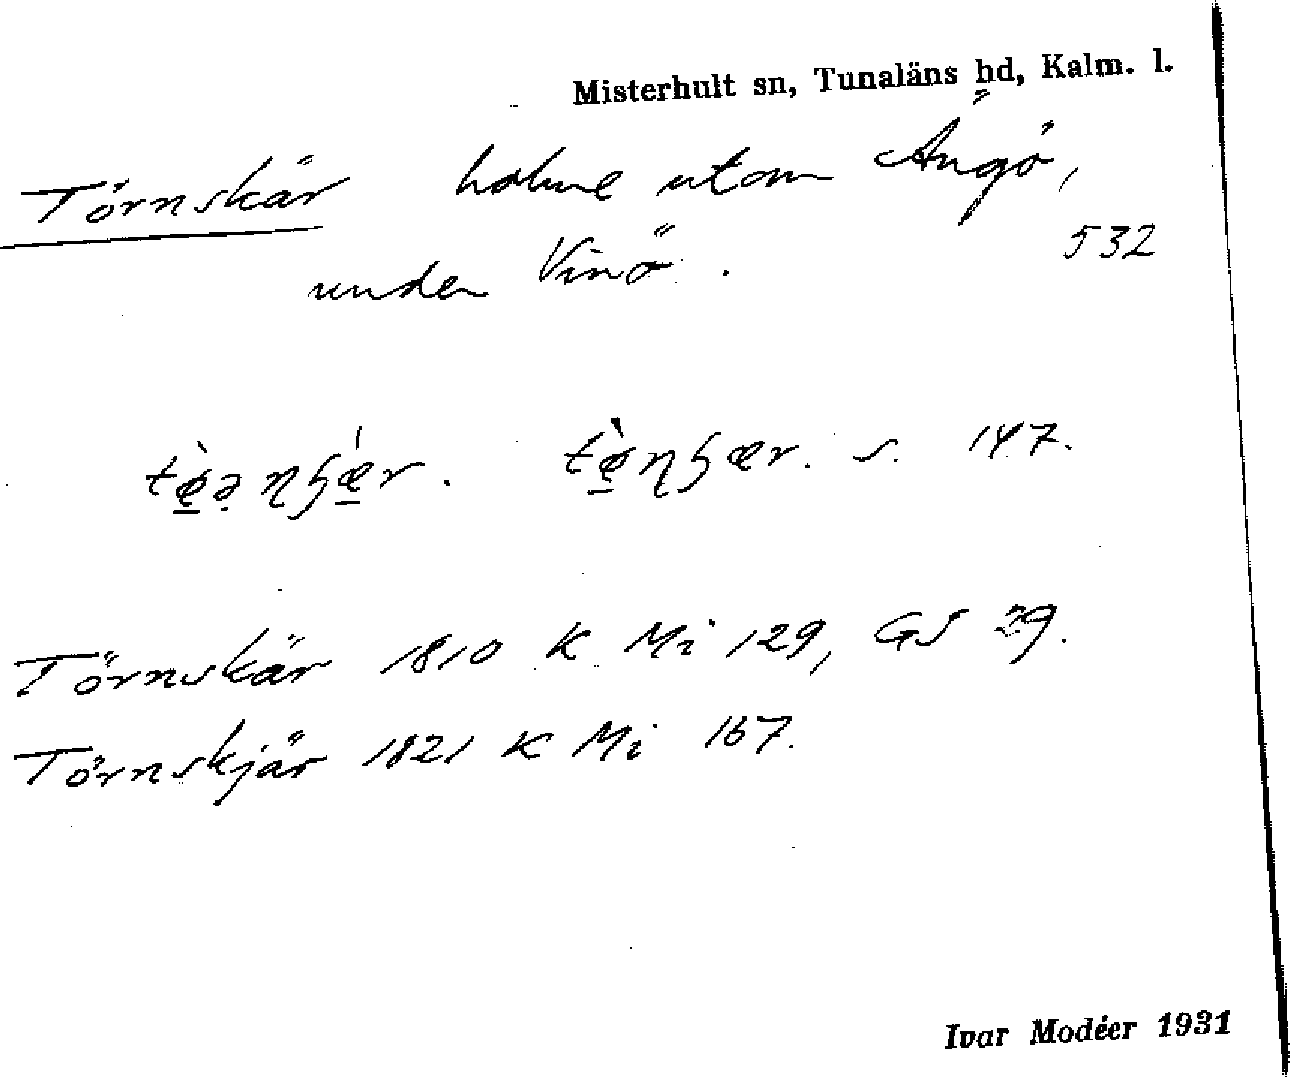 Misterhult sn, Tunaläns hd, Kalm. l.
Törnskär holme utom Ängö,
under Vinö. 532
s. 147.
Törnskär 1810 K Mi 129, GS 29.
Törnskjär 1821 K Mi 167.
Ivar Modéer 1931